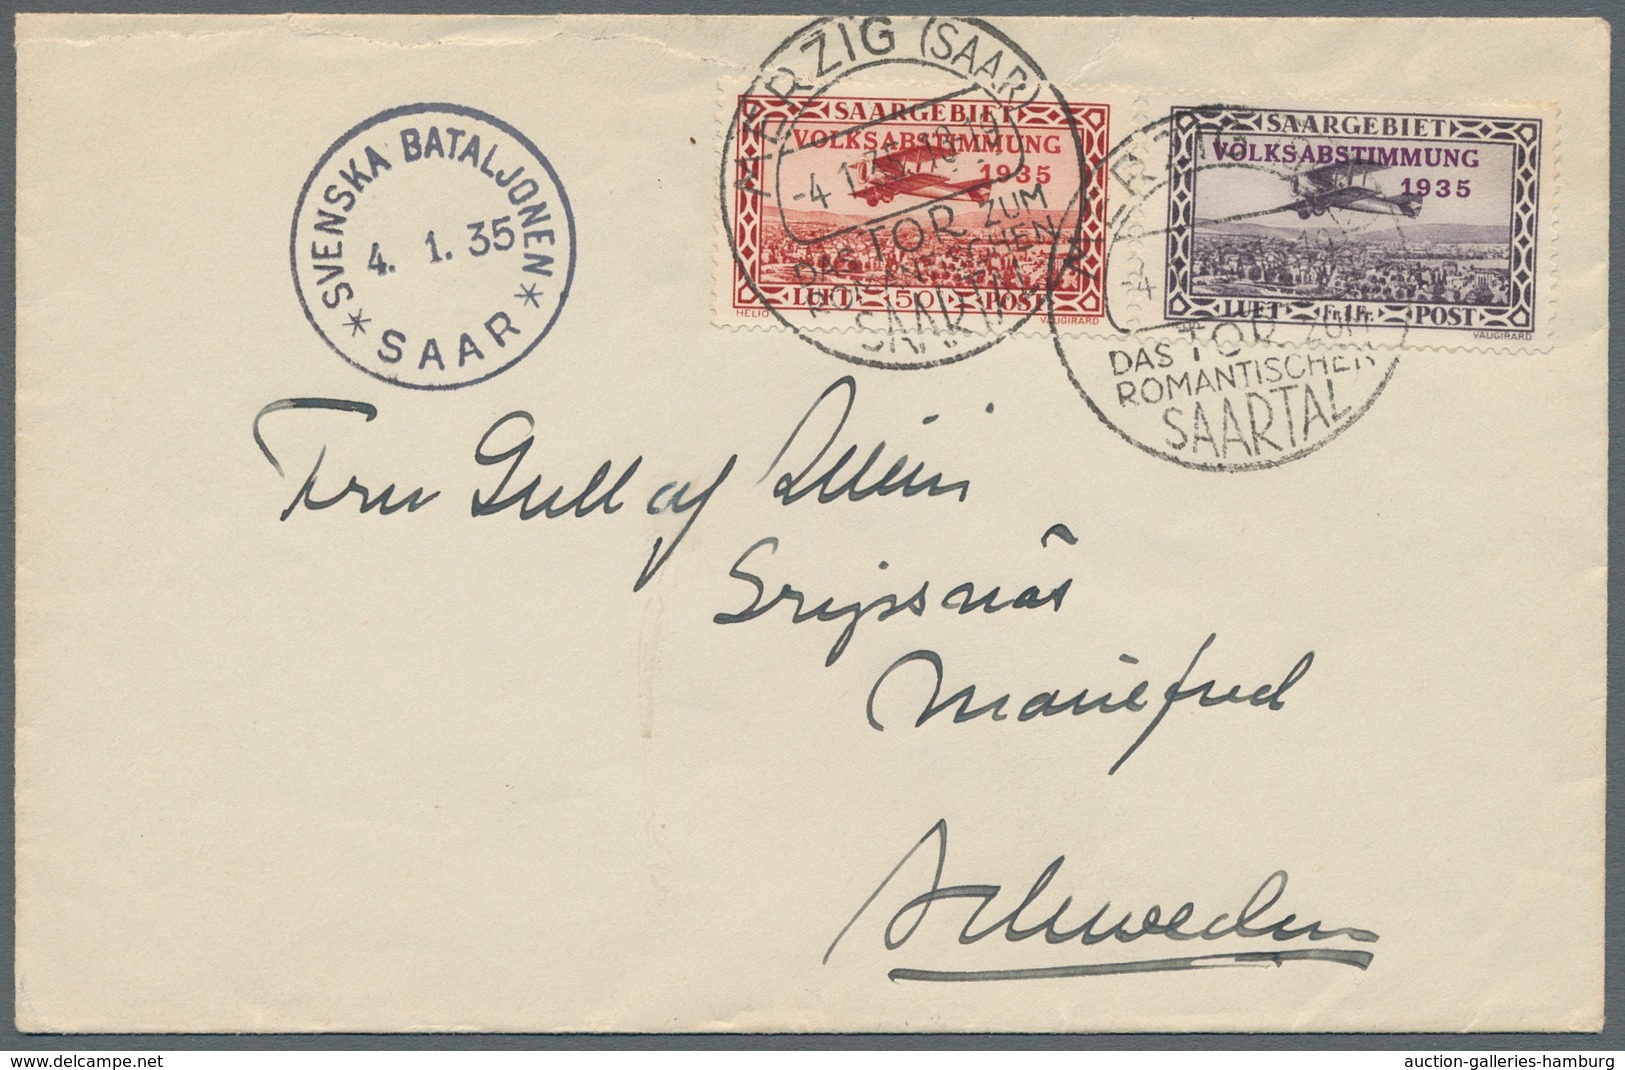 SVENSKA BATALJONEN
4. 1. 35
* SAAR *
MERZIG (SAAR)
-4.1.35.18-19
DAS TOR ZUM
ROMANTISCHEN
SAARTAL
SAARGEBIET
VOLKSABSTIMMUNG
1935
LUFT 50 POST
HELIO VAUGIRARD
SAARGEBIET
VOLKSABSTIMMUNG
1935
LUFT Fr.1Fr. POST
VAUGIRARD
DAS TOR ZUM
ROMANTISCHEN
SAARTAL
Fru Gull af
Gripsnäs
Mariefred
Schweden
delcampe.net
auction-galleries-hamburg